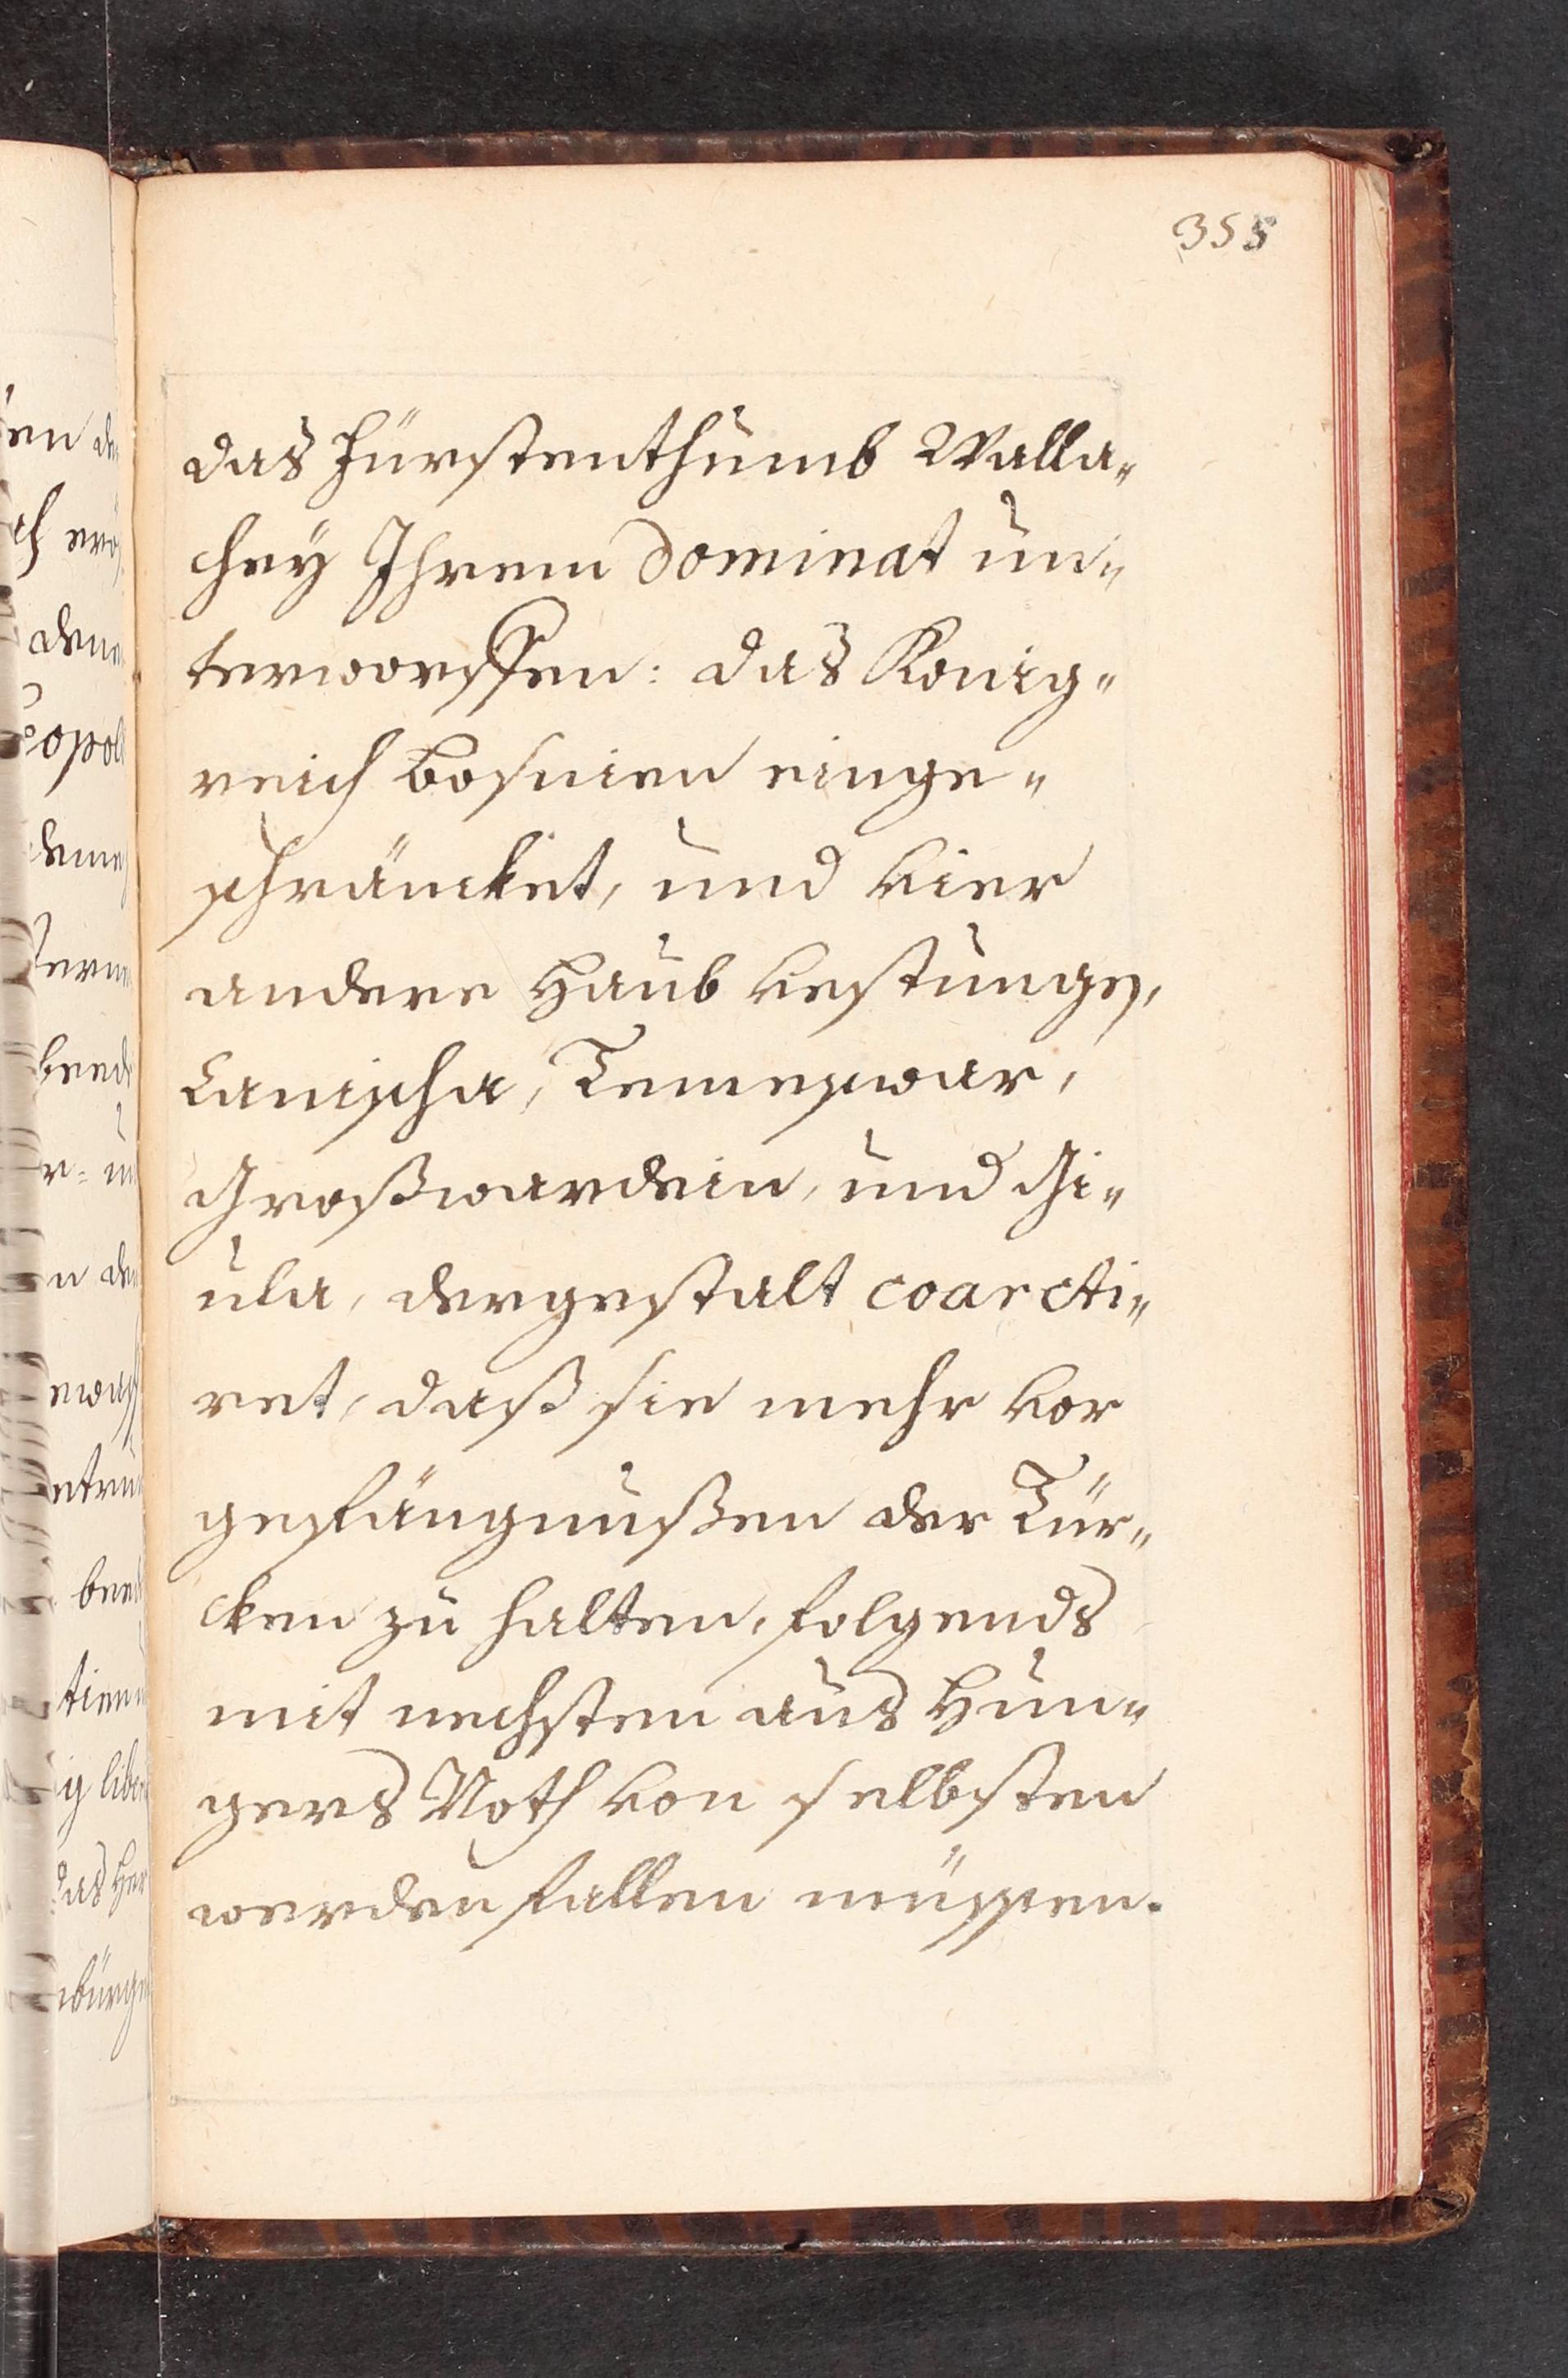 355
das Fürstenthumb Walla„
cheÿ Ihrem Dominat un„
terworffen: das König„
reich Bosnien einge„
schräncket, und vier
andere Haub vestungen,
Canischa, Temeswar,
Großwardein, und Gi„
ula, dergestalt coarcti„
ret, daß sie mehr vor
gefängnußen der Tür„
cken zu halten, folgends
mit nechsten aus Hun„
gers Noth von selbsten
werden fallen müssen.